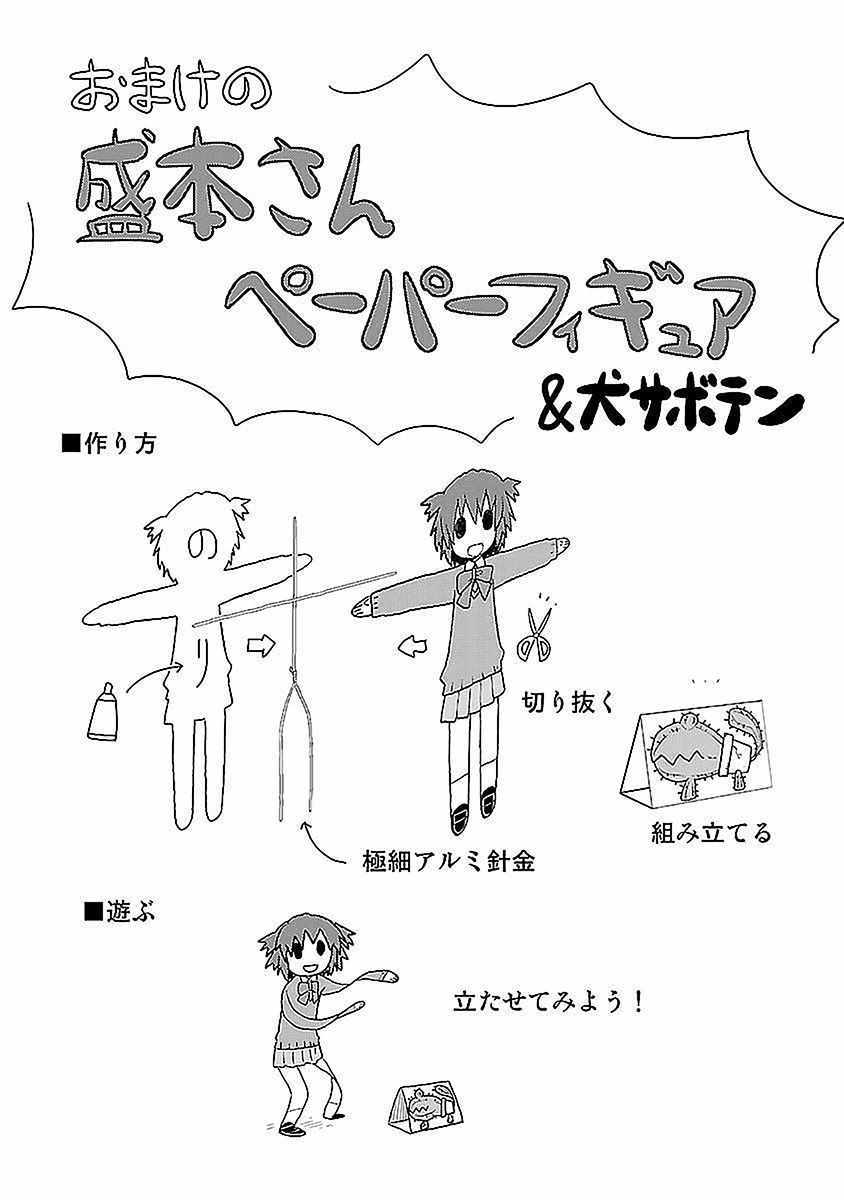 おまけの
盛本さん
ペーパーフィギュア
&犬サボテン
■作り方
の
リ
切り抜く
組み立てる
極細アルミ針金
■遊ぶ
立たせてみよう!